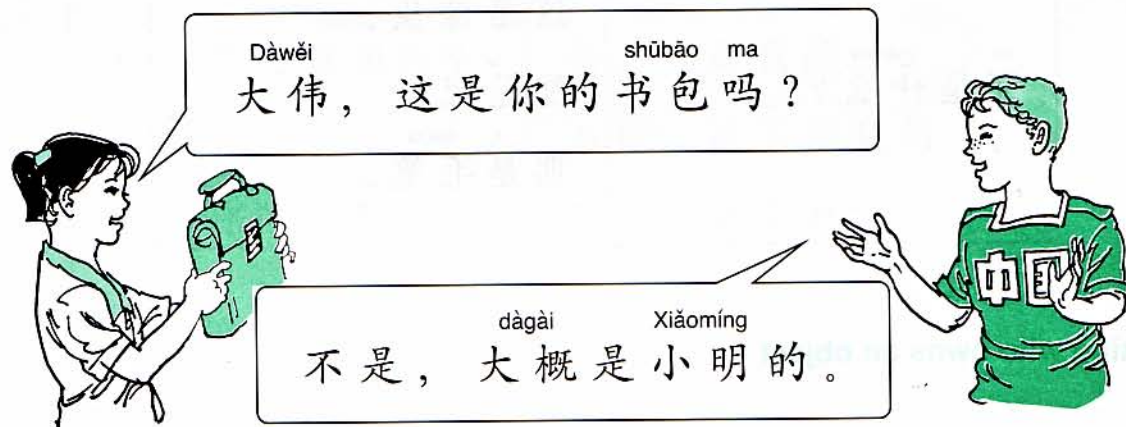 Dàwěi shūbāo ma
大伟，这是你的书包吗？
dàgài Xiǎomíng
不是，大概是小明的。
中国